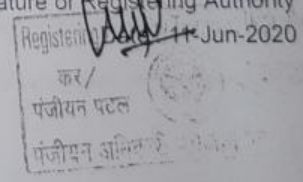 ature of Registering Authority
Registering 11-Jun-2020
कर/
पंजीयन पटल
पंजीयन